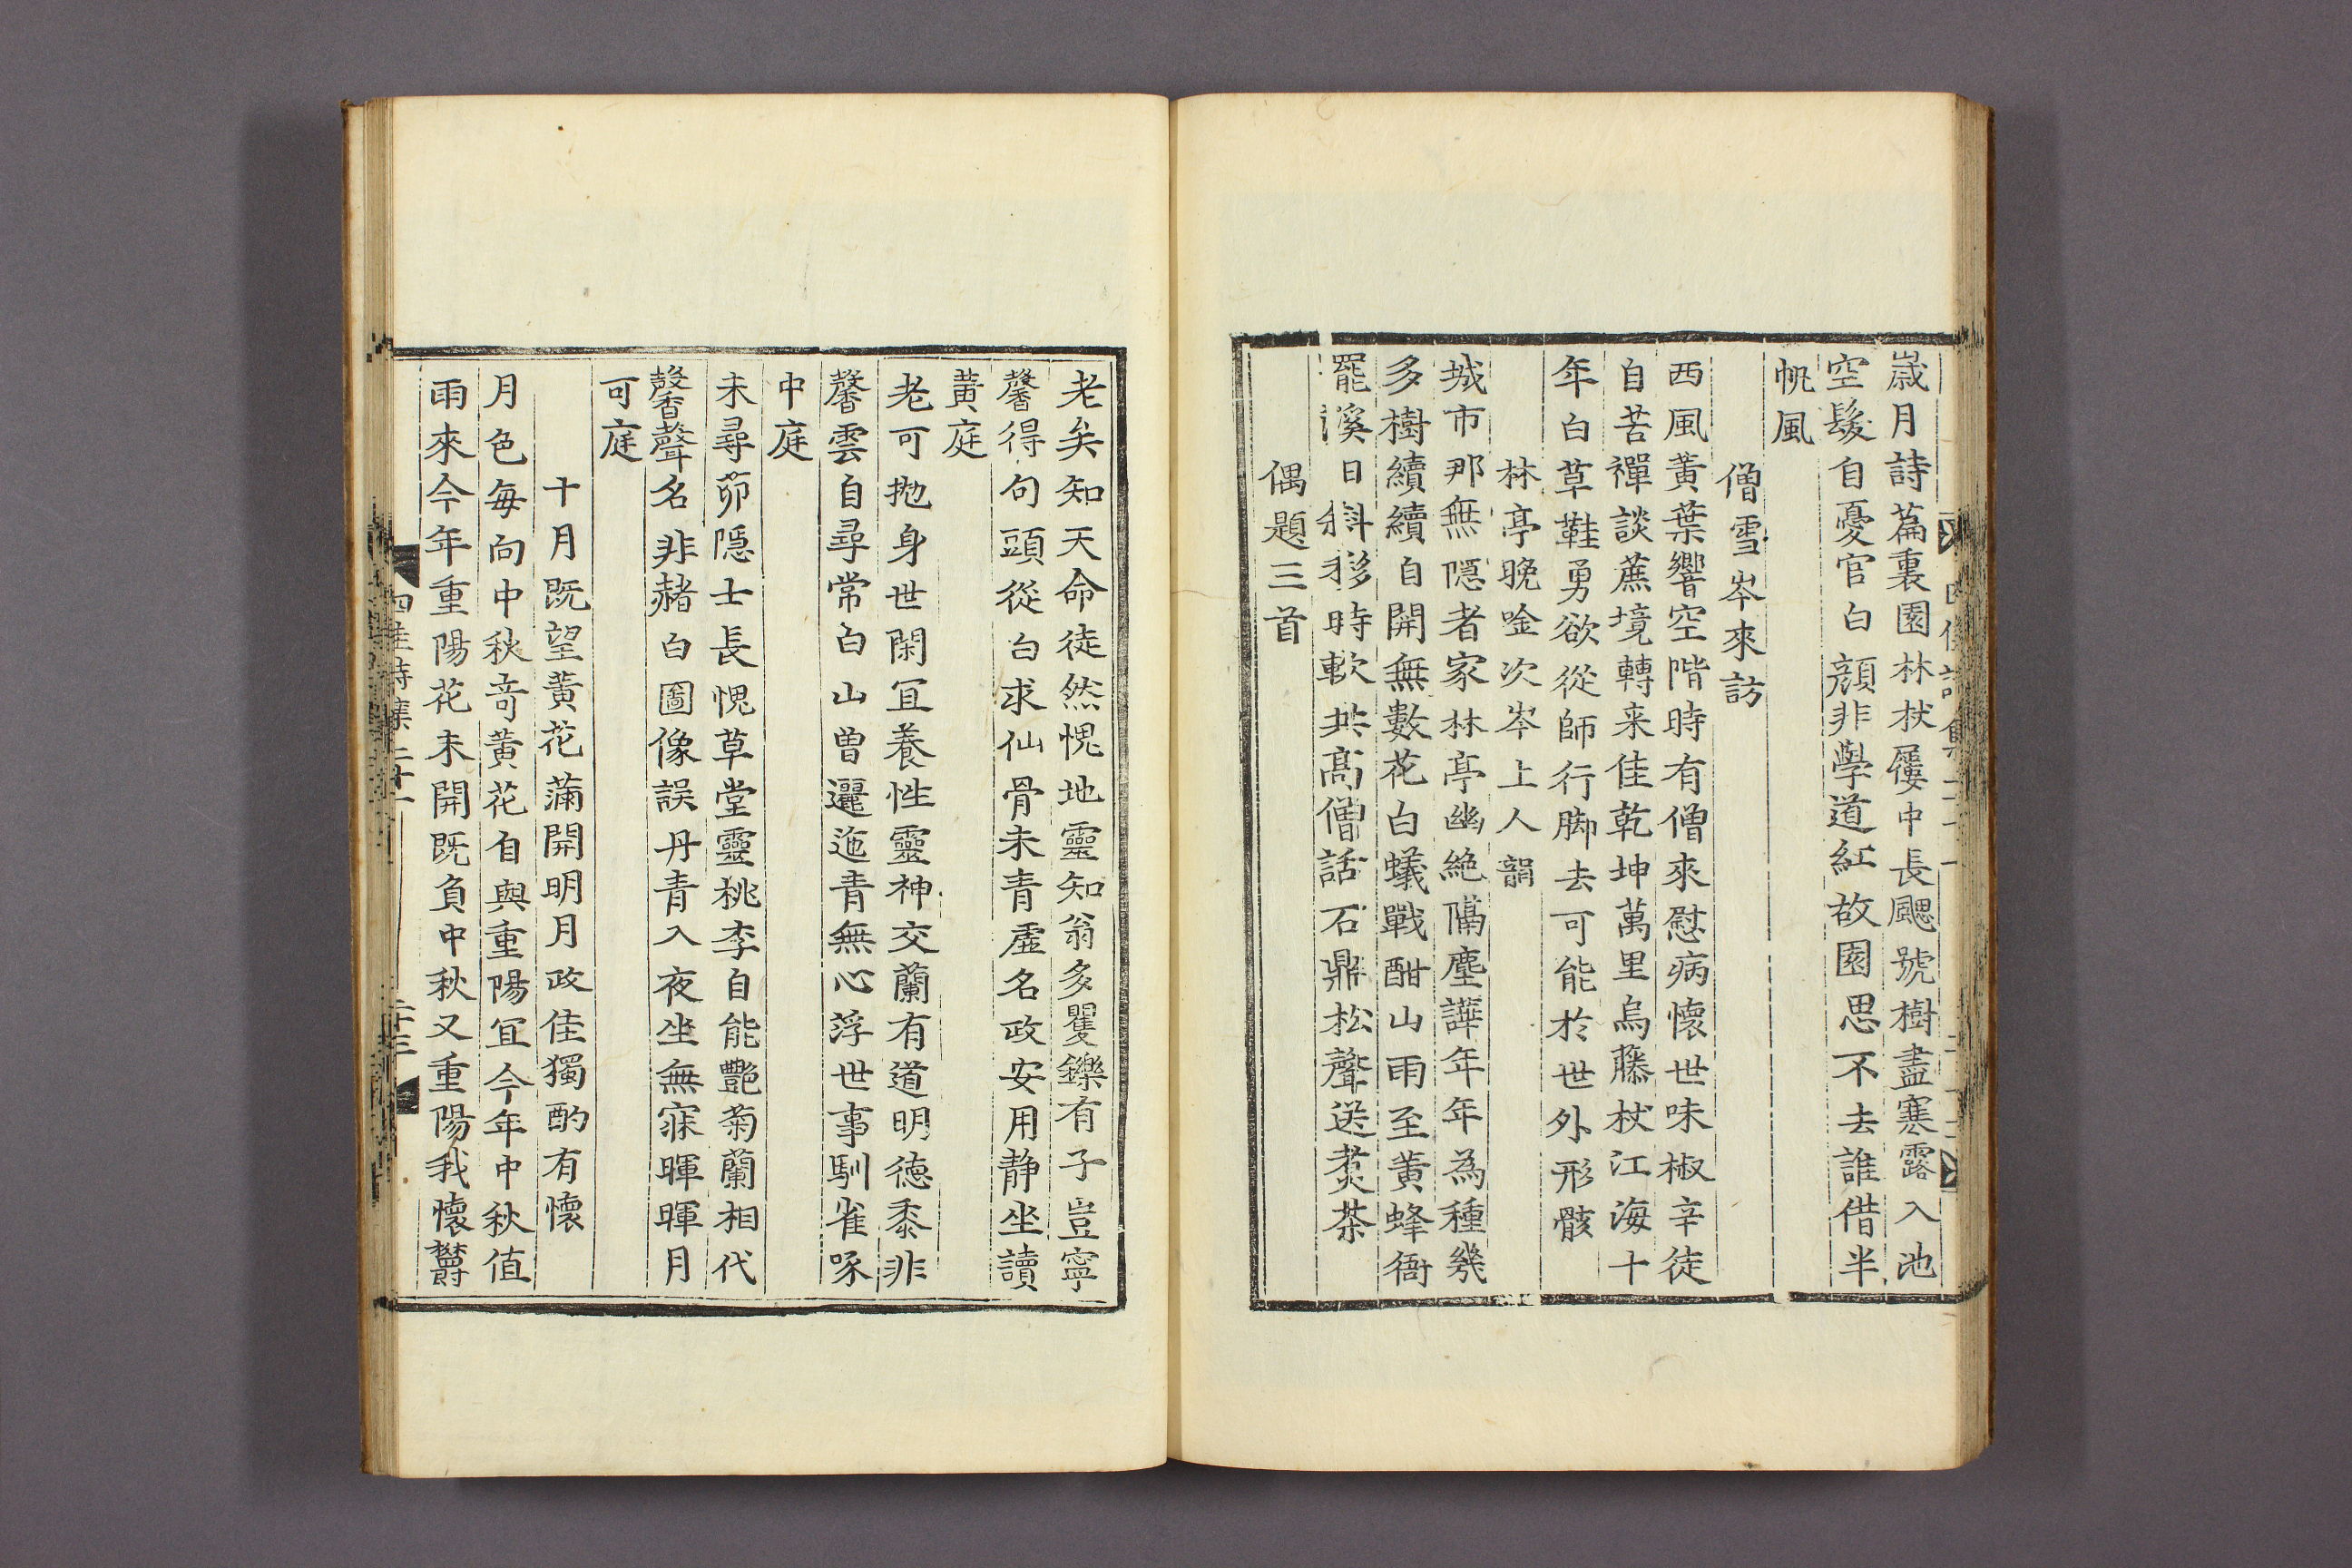 歲月詩篇裏園林杖屨中長颸號樹盡寒露入池
空髮自憂官白顔非學道紅故園思不去誰借半
帆風
僧雪岑來訪
西風黃葉響空階時有僧來慰病懷世味椒辛徒
自苦禪談蔗境轉来佳乾坤萬里烏藤杖江海十
年白草鞋勇欲從師行脚去可能於世外形骸
林亭晚唫次岑上人韻
城市那無隱者家林亭幽絶隔塵譁年年為種幾
多樹續續自開無數花白蟻戰酣山雨至黃蜂衙
罷溪日斜移時軟共高僧話石鼎松聲送煑茶
偶題三首
老矣知天命徒然愧地靈知翁多矍鑠有子豈寧
馨得句頭從白求仙骨未青虛名政安用静坐讀
黃庭
老可抛身世閑宜養性靈神交蘭有道明德黍非
馨雲自尋常白山曽邐迤青無心浮世事馴雀啄
中庭
未尋茆隱士長愧草堂靈桃李自能艷菊蘭相代
馨聲名非赭白圖像誤丹青入夜坐無寐暉暉月
可庭
十月既望黃花滿開明月政佳獨酌有懷
月色每向中秋竒黃花自與重陽宜今年中秋值
雨來今年重陽花未開既負中秋又重陽我懷欝
四佳詩集 二十一 二十三